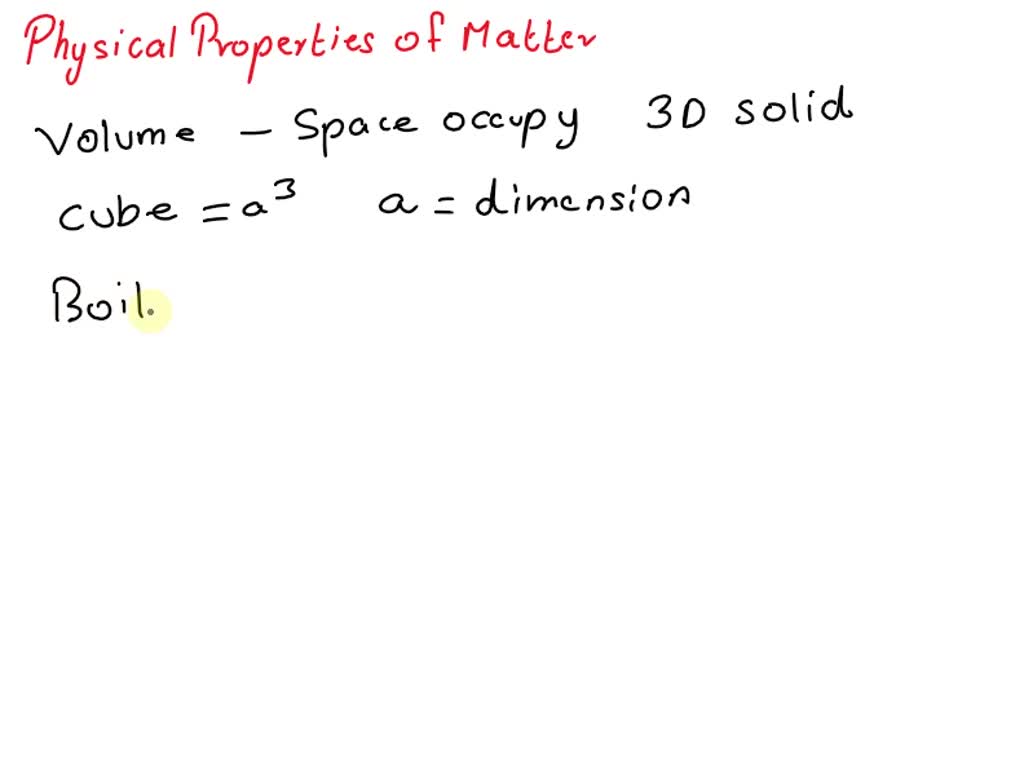 Physical Properties of Matter
Volume - Space occupy 3D solid
cube = a³ a = dimension
Boil.